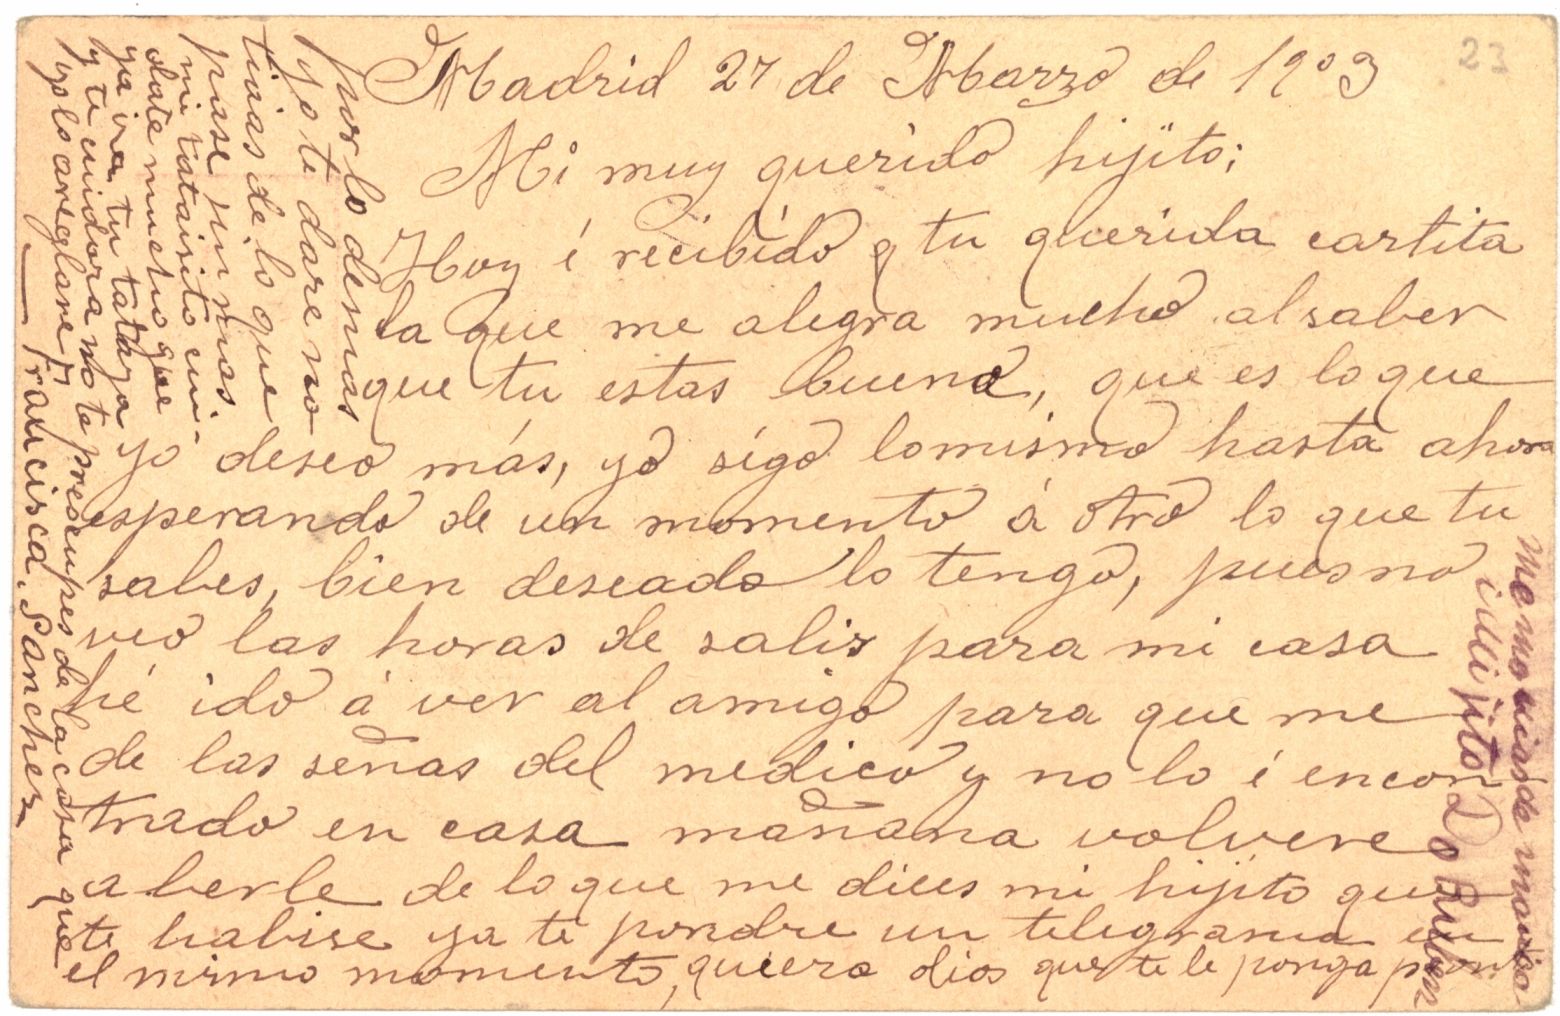 23
Madrid 27 de Marzo de 1903
Mi muy querido hijito;
Hoy é recibido q tu querida cartita
la que me alegra mucho al saber
que tu estas bueno, que es lo que
yo deseo más, yo sigo lo mismo hasta ahora
esperando de un momento á otro lo que tu
sabes, bien deseado lo tengo, pues no
veo las horas de salir para mi casa
hé ido á ver al amigo para que me
de las señas del medico y no lo é encon
trado en casa mañana volvere
a berle de lo que me dices mi hijito que
te habise ya te pondre un telegrama en
el mismo momento, quiera dios que te le ponga pronto
por lo demas
yo te dare no
ticias de lo que
pase
mi tataisito cui-
date mucho que
ya ira tu tataya
y te cuidara no te preocupes de la casa que
yo lo areglare
Francisca Sanchez